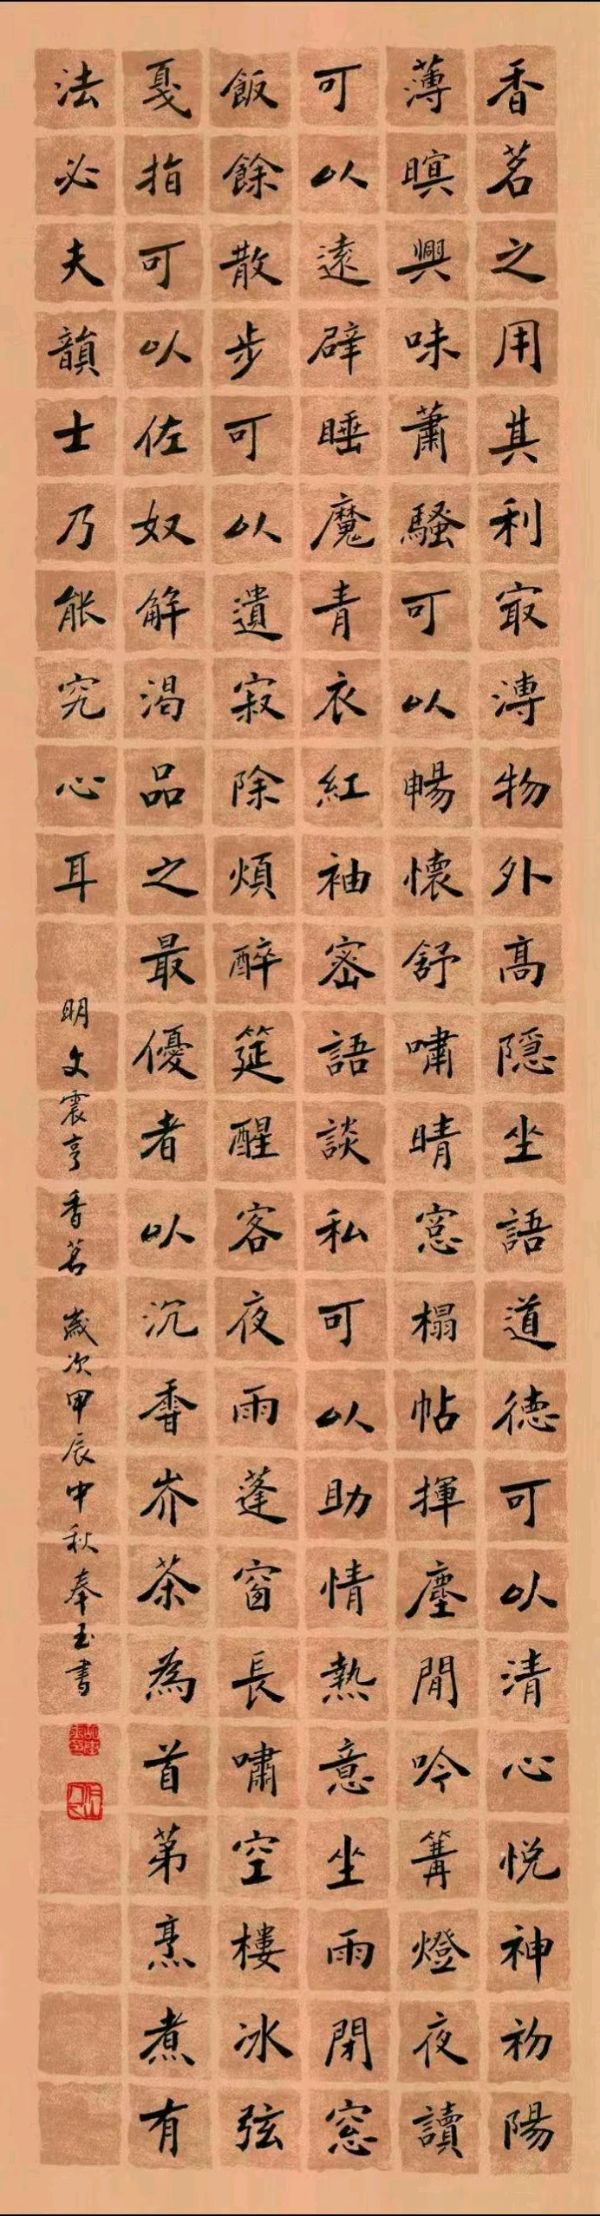 香茗之用其利㝡溥物外高隱坐語道德可以清心悅神初陽
薄暝興味蕭騷可以暢懷舒嘯晴窓榻帖揮麈閒吟篝燈夜讀
可以遠辟睡魔青衣紅袖密語談私可以助情熱意坐雨閉窓
飯餘散步可以遺寂除煩醉筵醒客夜雨蓬窗長嘯空樓冰弦
戛指可以佐奴解渴品之最優者以沉香岕茶為首第烹煮有
法必夫韻士乃能究心耳
明文震亨香茗 歲次甲辰中秋奉玉書